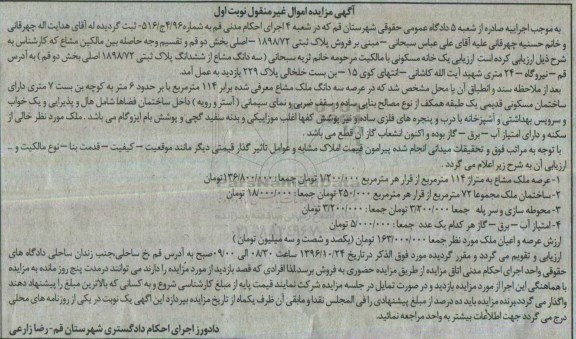 آگهی مزایده اموال غیر منقول نوبت اول
به موجب اجراییه صادره از شعبه ۵ دادگاه عمومی حقوقی شهرستان قم که در شعبه ۴ اجرای احکام مدنی قم به شماره ۴/۹۶ج/۵۱۶- ثبت گردیده له آقای هدایت اله چهرقانی
و خانم حسنیه چهرقانی علیه آقای علی عباس سبحانی – مبنی بر فروش پلاک ثبتی ۱۸۹۸/۷۲ – اصلی بخش دو قم و تقسیم وجه حاصله بین مالکین مشاع که کارشناس به
شرح ذیل ارزیابی کرده است ارزیابی یک خانه مسکونی با مالکیت مرحومه خانم ثریه سبحانی (سه دانگ مشاع از ششدانگ پلاک ثبتی ۱۸۹۸/۷۲ اصلی بخش دو قم) به آدرس
قم – نیروگاه – ۲۴ متری شهید آیت الله کاشانی – انتهای کوی ۱۵ – بن بست خلخالی پلاک ۲۲۹ بازدید به عمل آمد.
بعد از ملاحظه سند و انطباق آن با محل مشخص شد که در عرصه سه دانگ ملک مشاع معرفی شده برابر ۱۱۴ مترمربع با بر حدود ۶ متر به کوچه بن بست ۷ متری دارای
ساختمان مسکونی قدیمی یک طبقه همکف از نوع مصالح بنایی ساده و سقف ضربی و نمای سیمانی (آستر و رویه) داخل ساختمان فضاها شامل هال و پذیرایی و یک خواب
و سرویس بهداشتی و آشپزخانه با درب و پنجره های فلزی ساده و نیز پوشش کفها اغلب موزاییکی و بدنه سفید گچی و پوشش بام ایزوگام می باشد. ملک مورد نظر خالی از
سکنه و دارای امتیاز آب – برق – گاز بوده و اکنون انشعاب گاز آن قطع می باشد.
با توجه به مراتب فوق و تحقیقات میدانی انجام شده پیرامون قیمت املاک مشابه و عوامل تاثیر گذار قیمتی دیگر مانند موقعیت – کیفیت – قدمت بنا – نوع مالکیت و ..
ارزیابی آن به شرح زیر اعلام می گردد.
۱-عرصه ملک مشاع به متراژ ۱۱۴ مترمربع از قرار هر مترمربع ۱/۲۰۰/۰۰۰ تومان جمعا: ۱۳۶/۸۰۰/۰۰۰تومان
۲-ساختمان ملک مجموعا ۷۲ مترمربع از قرار هر مترمربع ۲۵۰/۰۰۰ تومان جمعا: ۱۸/۰۰۰/۰۰۰ تومان
۳-محوطه سازی و سر پله جمعا ۳/۲۰۰/۰۰۰ تومان جمعا: ۳/۲۰۰/۰۰۰ تومان
۴-امتیاز آب – برق – گاز هر کدام یک عدد جمعا: ۵/۰۰۰/۰۰۰ تومان
ارزش عرصه و اعیان ملک مورد نظر جمعا ۱۶۳/۰۰۰/۰۰۰ تومان (یکصد و شصت و سه میلیون تومان)
ارزیابی و تقویم می گردد و مقرر گردیده مورد فوق الذکر در تاریخ ۱۳۹۶/۱۰/۲۴ ساعت ۰۸/۳۰ الی ۰۹/۰۰ صبح به آدرس قم خ ساحلی جنب زندان ساحلی دادگاه های
حقوقی واحد اجرای احکام مدنی اتاق مزایده از طریق مزایده حضوری به فروش برسد لذا افرادی که قصد بازدید از مورد مزایده را دارند می توانند در مدت پنج روز مانده به مزایده
با هماهنگی این اجرا از مورد مزایده بازدید و در صورت تمایل در جلسه مزایده شرکت نمایند قیمت پایه از مبلغ کارشناسی شروع و به کسانی که بالاترین مبلغ را پیشنهاد دهند
واگذار می گردد برنده مزایده باید ده درصد از مبلغ پیشنهادی را فی المجلس نقدا و مابقی آن ظرف یکماه از تاریخ مزایده بپردازد این آگهی یک نوبت در یکی از روزنامه های محلی
درج می گردد جهت اطلاعات بیشتر به واحد مراجعه نمائید.
دادورز اجرای احکام دادگستری شهرستان قم- رضا زارعی